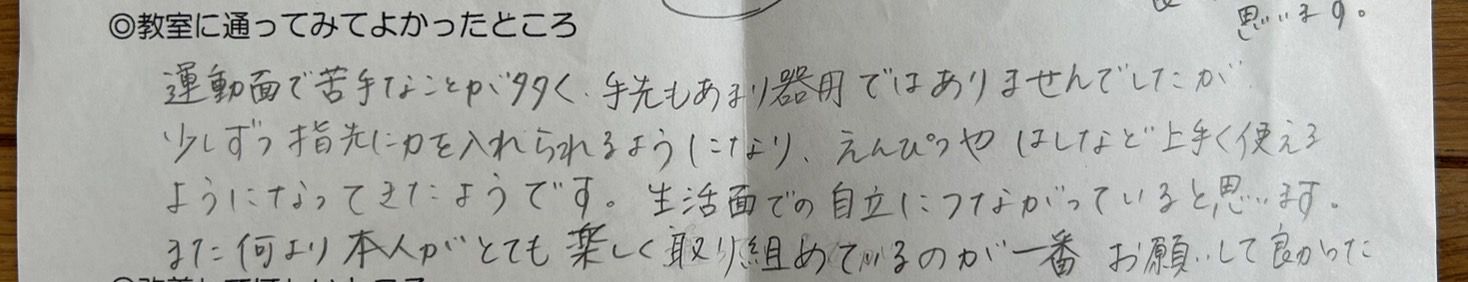 思います。
◎教室に通ってみてよかったところ
運動面で苦手なことが多く、手先もあまり器用ではありませんでしたが
少しずつ指先に力を入れられるようになり、えんぴつやはしなど上手く使える
ようになってきたようです。生活面での自立につながっていると思います。
また何より本人がとても楽しく取り組めているのが一番お願いして良かった